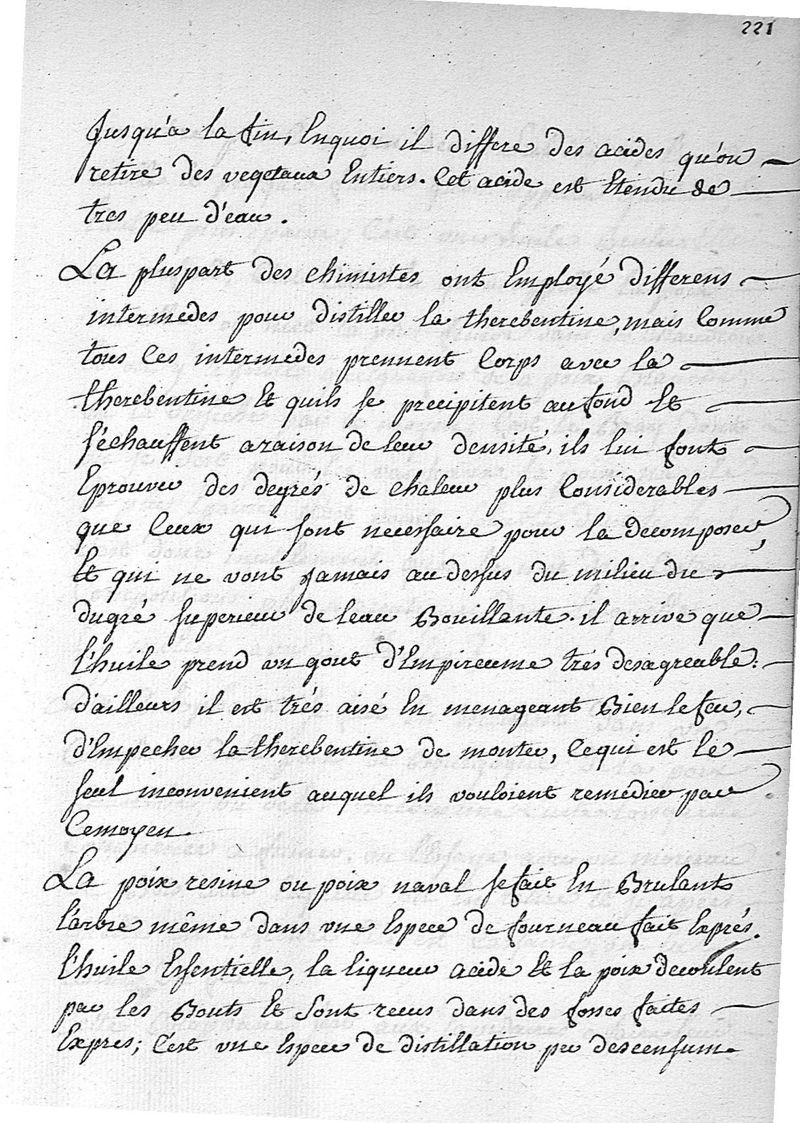 221
Jusqu'a la fin, Enquoi il differe des acides qu'on
retire des vegetaux Entiers. Cet acide est Etendu de
tres peu d'eau.
La pluspart des chimistes ont Employé differens
intermedes pour distiller la therebentine, mais Comme
tous Ces intermedes prennent Corps avec la
therebentine Et quils se precipitent au fond Et
s'échauffent a raison de leur densité, ils lui font
Eprouver des degrés de chaleur plus Considerables
que Ceux qui sont necessaire pour la decomposer,
Et qui ne vont jamais au dessus du milieu du
dugré superieur de leau Bouillante. il arrive que
l'huile prend un gout d'Empireume tres desagreable.
d'ailleurs il est trés aisé En menageant Bien le feu,
d'Empecher la therebentine de monter, Cequi est le
seul inconvenient auquel ils vouloient remédier par
Cemoyen.
La poix resine ou poix naval se fait En Brulant
l'arbre même dans une Espece de fourneau fait Exprés.
l'huile Essentielle, la liqueur acide Et la poix decoulent
par les Bouts Et sont recus dans des fosses faites
Expres; C'est une Espece de distillation per descensum.